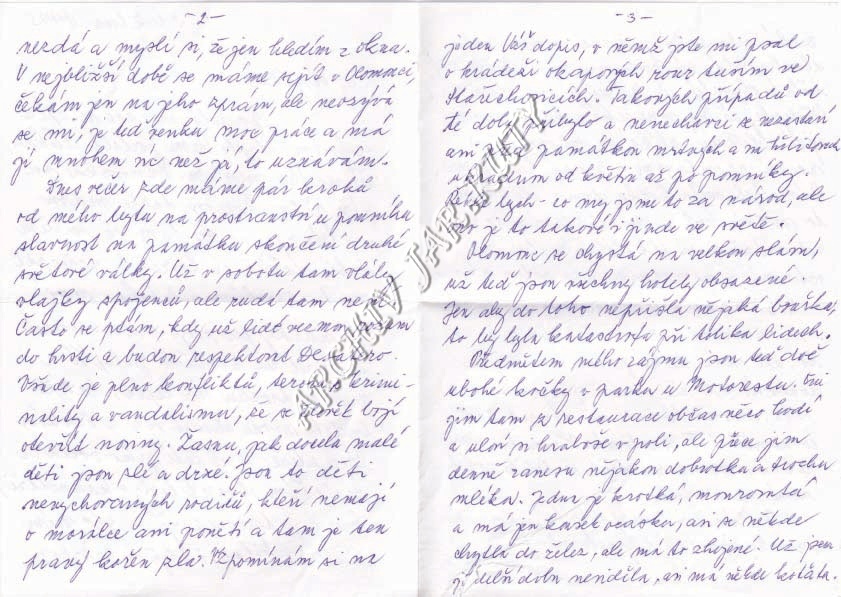 - 2 -
nezdá a myslí si, že jen hledím z okna.
V nejbližší době se máme sejít v Olomouci,
čekám jen na jeho zprávu, ale neozývá
se mi, je teď ženku moc práce a má
jí mnohem víc než já, to uznávám.
Dnes večer zde máme pár kroků
od mého bytu na prostranství u pomníku
slavnost na památku skončení druhé
světové války. Už v sobotu tam vlály
vlajky spojenců, ale rudá tam není.
Často se ptám, kdy už lidé vezmou rozum
do hrsti a budou respektovat Desatero.
Všude je plno konfliktů, teroru, krimi-
nality a vandalismu, že se člověk bojí
otevřít noviny. Žasnu, jak docela malé
děti jsou zlé a drzé. Jsou to děti
nevychovaných rodičů, kteří nemají
o morálce ani ponětí a tam je ten
pravý kořen zla. Vzpomínám si na
- 3 -
jeden Váš dopis, v němž jste mi psal
o krádeži okapových rour tuším ve
Stařechovicích. Takových případů od
té doby přibylo a nenechavci se nezastaví
ani před památkou mrtvých a na hřbitovech
ukradnou od květin až po pomníky.
co my jsme to za národ, ale
je to takové i jinde ve světě.
Olomouc se chystá na velkou slávu,
už teď jsou všechny hotely obsazené.
Jen aby do toho nepřišla nějaká bouřka,
to by byla katastrofa při tolika lidech.
Předmětem mého zájmu jsou teď dvě
ubohé kočky v parku u Motorestu.
jim tam z restaurace občas něco hodí
a uloví si hraboše v poli, ale přece jim
denně zanesu nějakou dobrotku a trochu
mléka. Jedna je krotká, mourovatá
a má jen kousek ocásku, asi se někde
chytla do želez, ale má to zhojené. Už jsem
ji delší dobu neviděla, asi má někde koťata.
ARCHIV JAR-KUTY